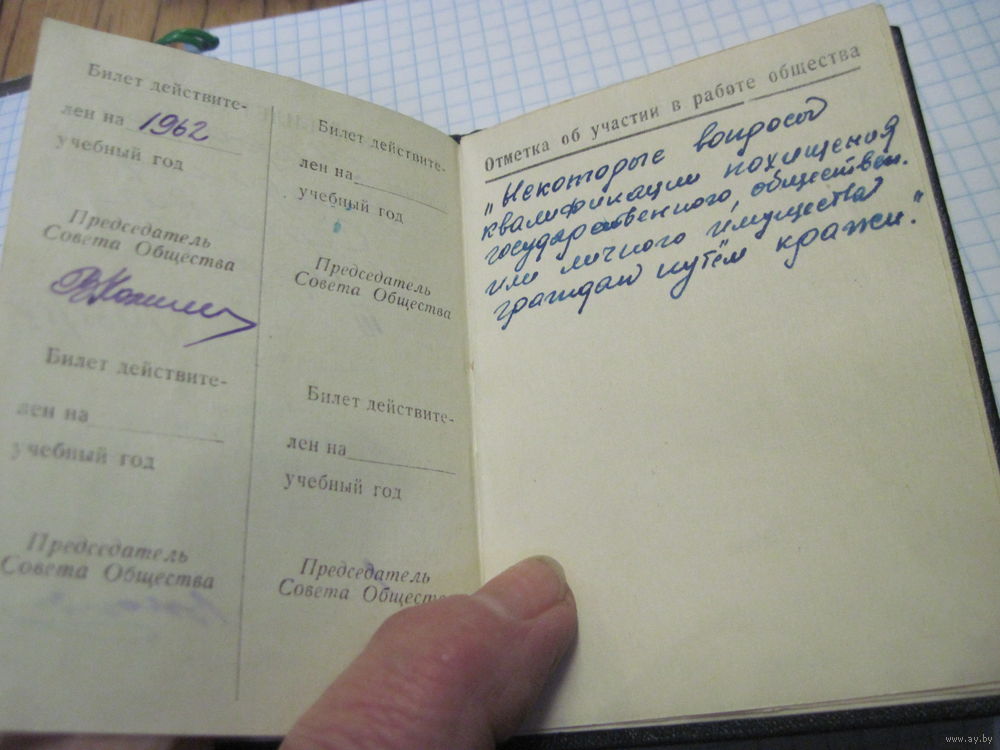 Билет действите-
лен на 1962
учебный год
Председатель
Совета Общества
Билет действите-
лен на
учебный год
Председатель
Совета Общества
Билет действите-
лен на
учебный год
Председатель
Совета Общества
Билет действите-
лен на
учебный год
Председатель
Совета Общест
Отметка об участии в работе общества
„Некоторые вопросы
квалификации похищения
государственного, обществен.
или личного имущества
граждан путём кражи."
www.ay.by